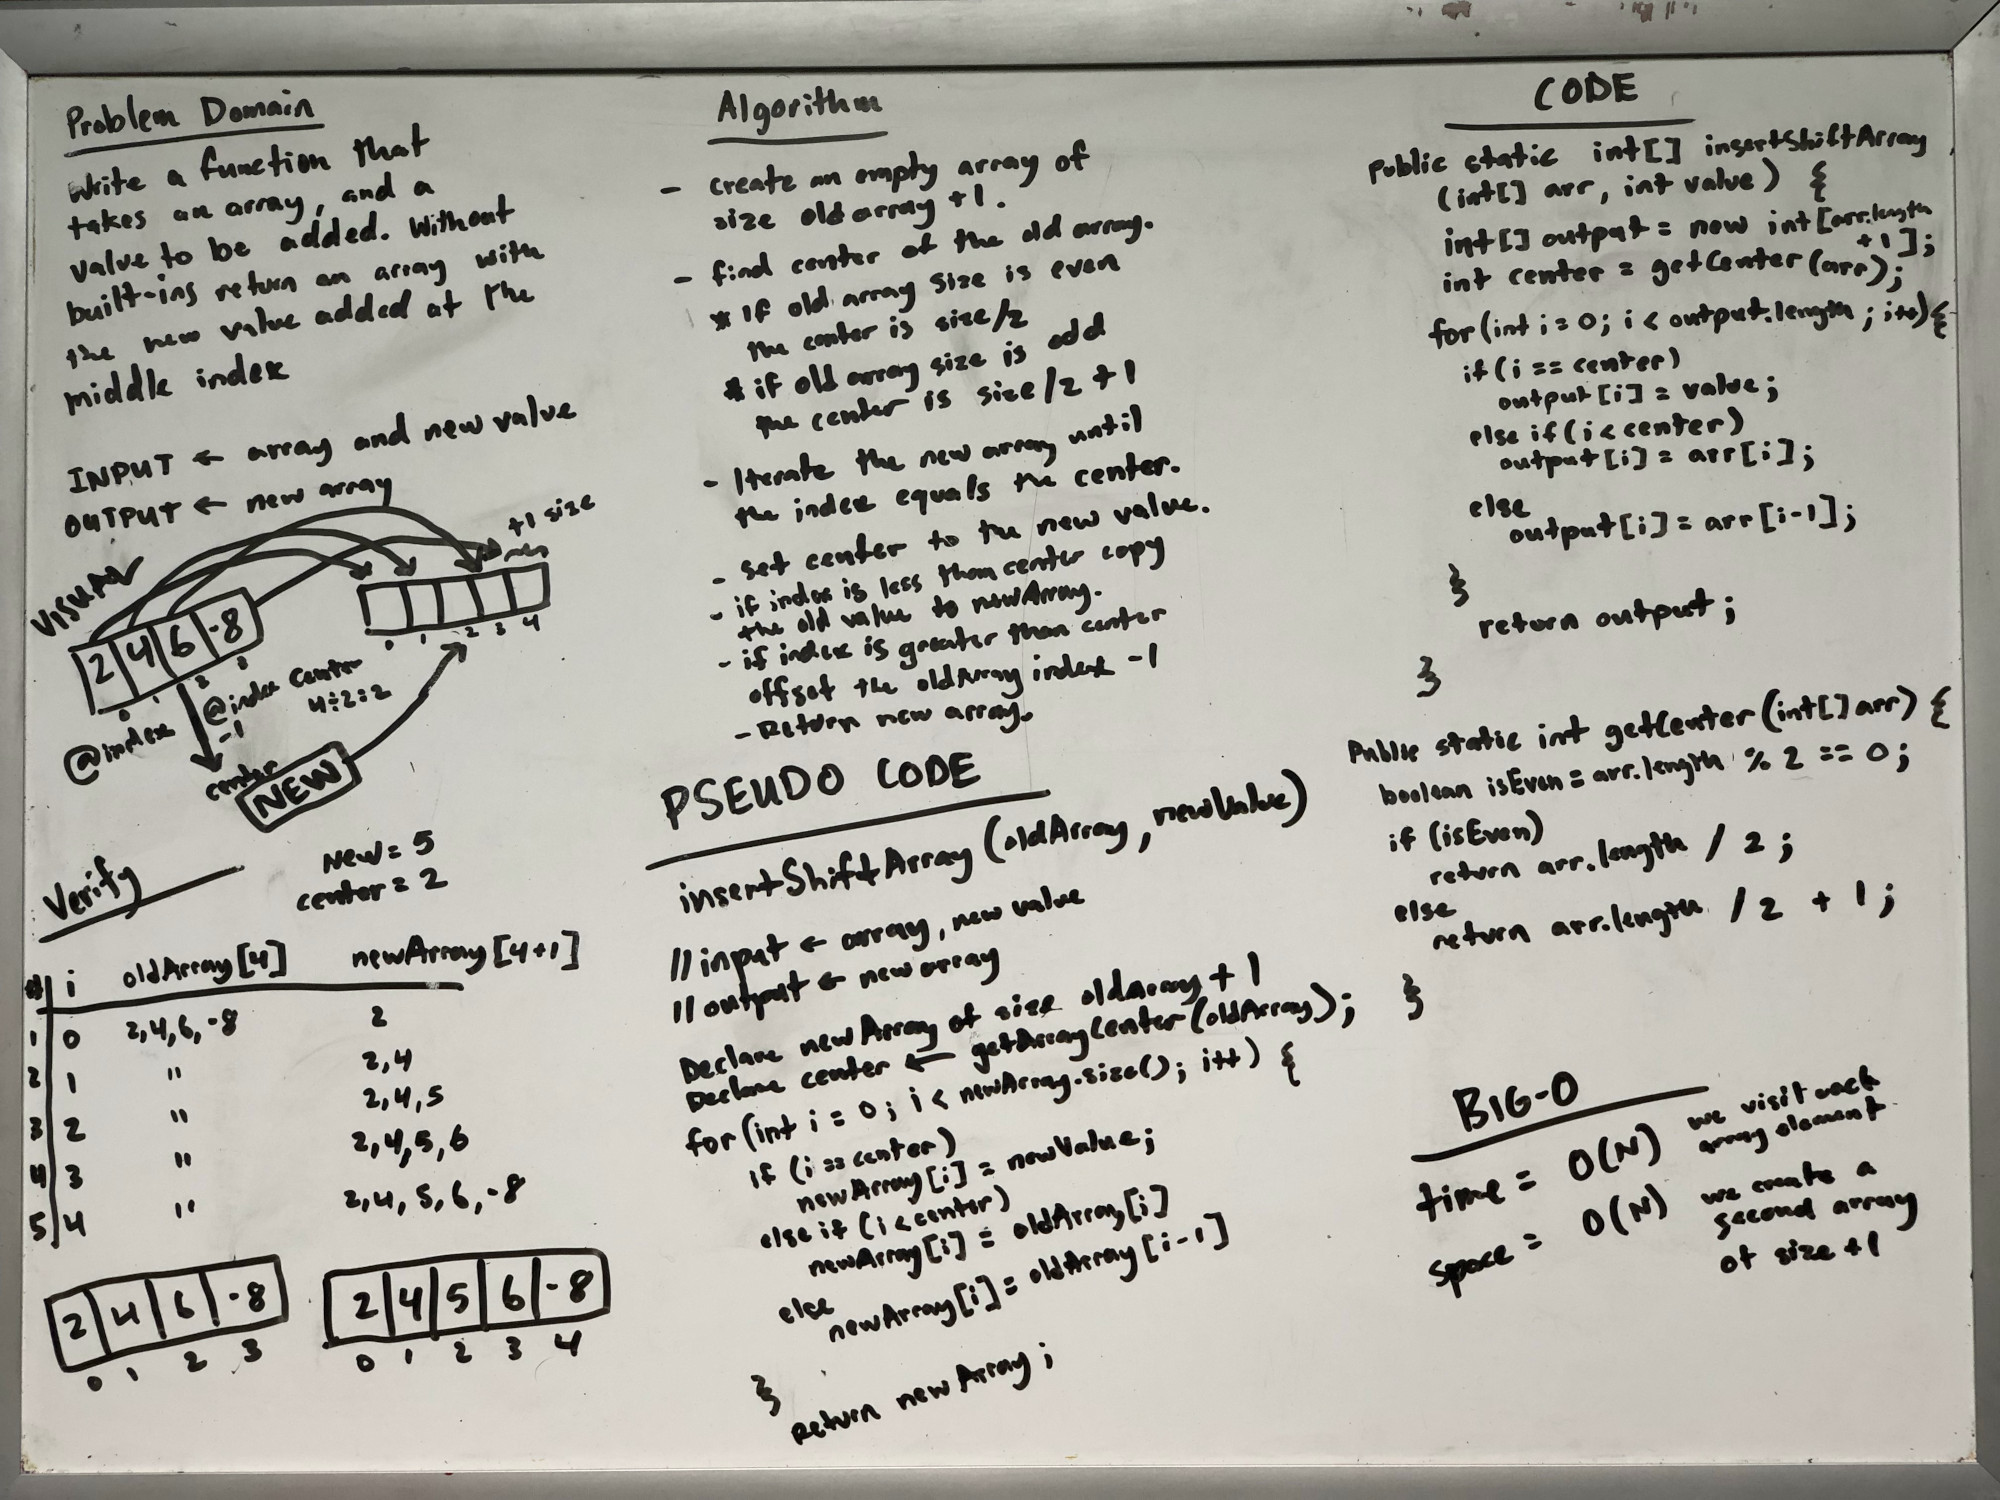 Problem Domain
Write a function that
takes an array, and a
value to be added. Without
built-ins return an array with
the new value added at the
middle index
INPUT ← array and new value
OUTPUT ← new array
VISUAL
+1 size
2 4 6 -8
0 1 2 3
0 1 2 3 4
@index
@index center
-1
4÷2=2
center
NEW
Verify
New = 5
center = 2
# i oldArray[4] newArray[4+1]
1 0 2,4,6,-8 2
2 1 " 2,4
3 2 " 2,4,5
4 3 " 2,4,5,6
5 4 " 2,4,5,6,-8
2 4 6 -8
0 1 2 3
2 4 5 6 -8
0 1 2 3 4
Algorithm
- create an empty array of
size old array +1.
- find center of the old array.
* If old array size is even
the center is size/2
* if old array size is odd
the center is size/2 + 1
- Iterate the new array until
the index equals the center.
- Set center to the new value.
- if index is less than center copy
the old value to newArray.
- if index is greater than center
offset the oldArray index -1
- Return new array.
PSEUDO CODE
insertShiftArray (oldArray, newValue)
// input ← array, new value
// output ← new array
Declare newArray of size oldarray + 1
Declare center ← getArrayCenter(oldArray);
for (int i = 0; i < newArray.size(); i++) {
if (i == center)
newArray[i] = newValue;
else if (i < center)
newArray[i] = oldArray[i]
else
newArray[i] = oldArray[i-1]
}
Return newArray;
CODE
Public static int[] insertShiftArray
(int[] arr, int value) {
int[] output = new int[arr.length
+1];
int center = getCenter(arr);
for (int i = 0; i < output.length; i++) {
if (i == center)
output[i] = value;
else if (i < center)
output[i] = arr[i];
else
output[i] = arr[i-1];
}
return output;
}
Public static int getCenter(int[] arr) {
boolean isEven = arr.length % 2 == 0;
if (isEven)
return arr.length / 2;
else
return arr.length / 2 + 1;
}
BIG-O
time = O(N) we visit each
array element
space = O(N) we create a
second array
of size +1